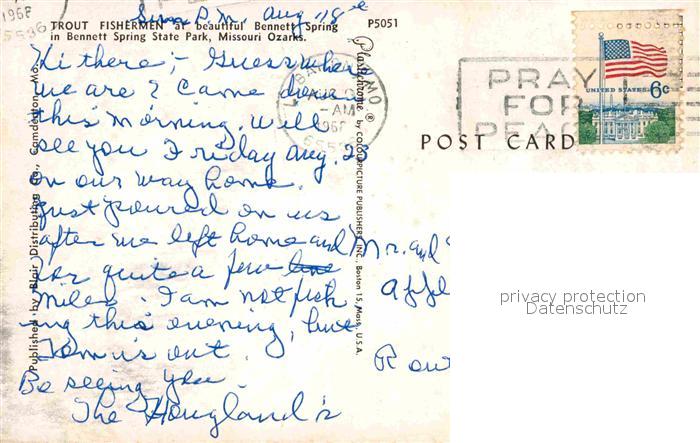 Sun P.M. Aug 18
TROUT FISHERMEN at beautiful Bennett Spring
in Bennett Spring State Park, Missouri Ozarks.
P5051
Hi there; - Guess where
we are? Came down
this morning. Will
see you Friday Aug. 23
on our way home.
Just poured on us
after we left home and
for quite a few
miles. I am not fish
ing this evening, but
Tom is out.
Be seeing you.
The Hougland's
Published by Blair Distributing Co., Camdenton, Mo.
Plastichrome ® by COLOURPICTURE PUBLISHERS, INC., Boston 15, Mass., U.S.A.
LEBANON MO
AUG
AM
1968
PRAY
FOR
PEACE
UNITED STATES
6c
POST CARD
Mr. and
privacy protection
Datenschutz